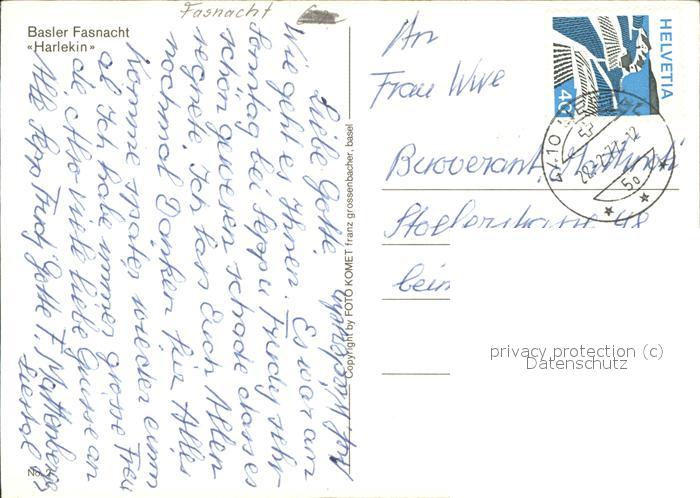 Basler Fasnacht
«Harlekin»
Fasnacht
Liebe Gotte
Wie geht es Ihnen. Es war am
Sonntag bei Seppu Trudy sehr
schön gewesen schade dass es
regnete. Ich lass Euch Allen
nochmal Danken für Alles
Komme später wieder einm
al Ich habe immer grosse Freu
de, Also viele liebe Grüsse an
Alle Sepp Trudy Gotte T.
Liestal
No.
Copyright by FOTO KOMET franz grossenbacher, basel
An
Frau Wwe
HELVETIA
40
4410
28.2.77-12
privacy protection (c)
Datenschutz